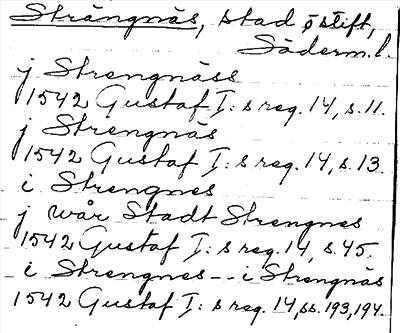 Strängnäs, stad o stift,
Söderm. l.
j Strengnäss
1542 Gustaf I: s reg. 14, s. 11.
j Strengnäs
1542 Gustaf I: s reg. 14, s. 13.
i Strengnes
j wår Stadt Strengnes
1542 Gustaf I: s reg. 14, s. 45.
i Strengnes -- i Strengnäs
1542 Gustaf I: s reg. 14, ss. 193, 194.